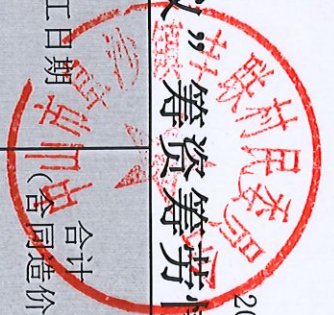 20
”筹资筹劳
工日期
合计
(合同造价
联村民委员会